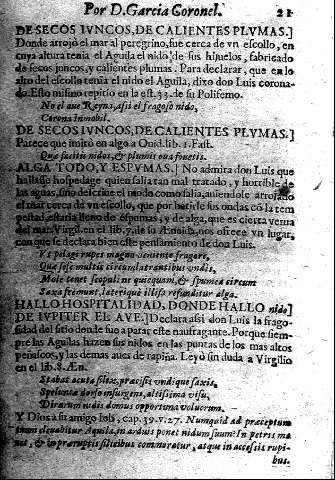 Por D. Garcia Coronel. 21
DE SECOS IVNCOS, DE CALIENTES PLVMAS.]
Donde arrojó el mar al peregrino, fue cerca de vn escollo, en
cuya altura tenia el Aguila el nido de sus hijuelos, fabricado
de secos juncos, y calientes plumas. Para declarar, que en lo
alto del escollo tenia el nido el Aguila, dixo don Luis corona-
do. Esto mismo repitio en la est. 33. de su Polifemo.
No el que Reyna, assi el fragoso nido,
Corona inmobil.
DE SECOS IVNCOS, DE CALIENTES PLVMAS.]
Parece que imitó en algo a Ouid. lib. 1. Fast.
Que facitis nidos, & plumis oua fouetis.
ALGA TODO, Y ESPVMAS.] No admira don Luis que
hallasse hospedage quien salia tan mal tratado, y horrible de
las aguas, sino descriue el modo como salia, auiendole arrojado
el mar cerca de vn escollo, que por batirle sus ondas cō la tem
pestad, estaria lleno de espumas, y de alga, que es cierta yerua
del mar. Virgil. en el lib. 7. de su Æneida, nos ofrece vn lugar,
con que se declara bien este pensamiento de don Luis.
Vt pelagi rupes magno veniente fragore,
Quæ sese multis circumlatrantibus vndis,
Mole tenet scopuli ne quicquam, & spumea circum
Saxa fremunt, laterique illisa refunditur alga.
HALLO HOSPITALIDAD, DONDE HALLO nido]
DE IVPITER EL AVE.] Declara assi don Luis la frago-
sidad del sitio donde fue a parar este naufragante. Porque siem-
pre las Aguilas hazen sus nidos en las puntas de los mas altos
peñascos, y las demas aues de rapiña. Leyó sin duda a Virgilio
en el lib. 8. Æn.
Stabat acuta silex, præcisis vndique saxis,
Speluncæ dorso insurgens, altissima visu,
Dirarum nidis domus opportuna volucrum.
Y Dios a su amigo Iob, cap. 39. v. 27. Numquid ad præceptum
tuum eleuabitur Aquila, in arduis ponet nidum suum? In petris ma
net, & in præruptis silicibus commoratur, atque in accessis rupi-
bus.